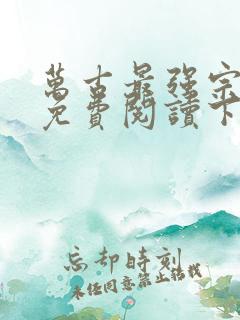 萬古最強宗
免費閱讀下
忘却時刻
未经同意禁止转载